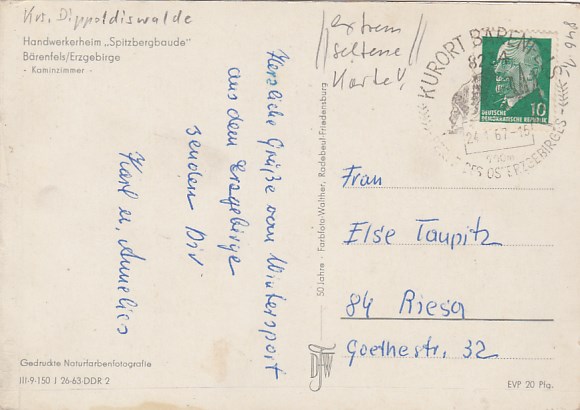 Krs. Dippoldiswalde
Handwerkerheim „Spitzbergbaude"
Bärenfels/Erzgebirge
- Kaminzimmer -
Herzliche Grüße vom Wintersport
aus dem Erzgebirge
senden Dir
Karl u. Annelies
Gedruckte Naturfarbenfotografie
III-9-150 J 26-63-DDR 2
50 Jahre - Farbfoto-Walther, Radebeul-Friedensburg
extrem
seltene
Karte!
KURORT BÄRENFELS
24.1.67-15
DES OSTERZGEBIRGES
10
DEUTSCHE
DEMOKRATISCHE REPUBLIK
Frau
Else Taupitz
84 Riesa
Goethestr. 32
EVP 20 Pfg.